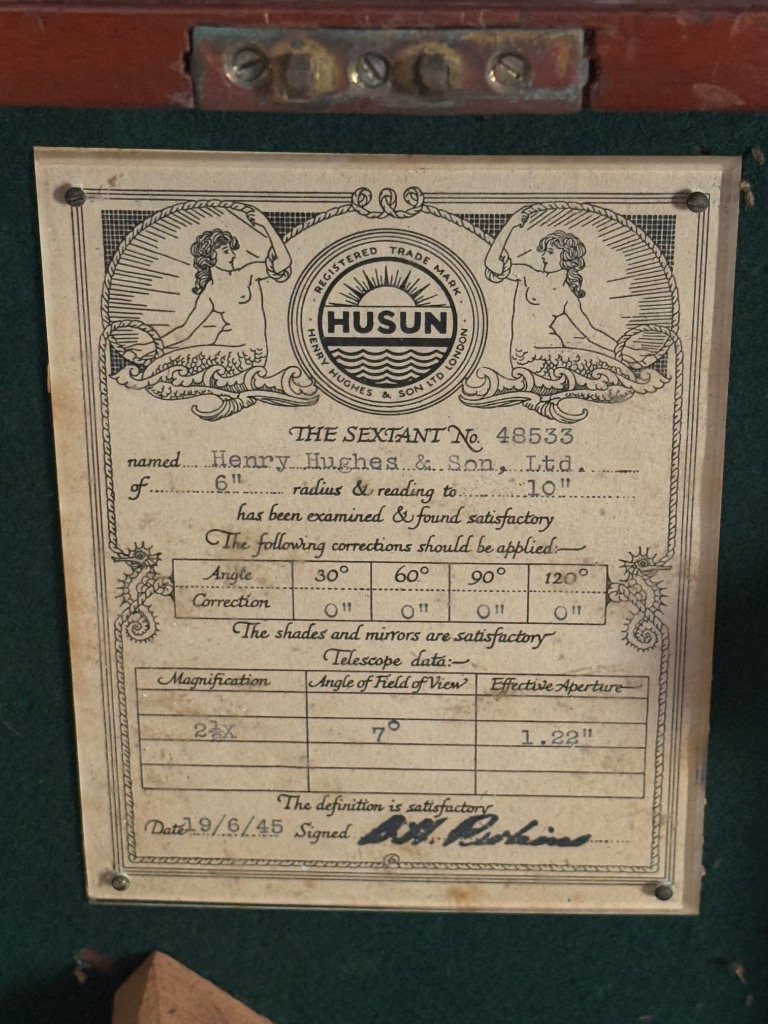 REGISTERED TRADE MARK
HUSUN
HENRY HUGHES & SON LTD LONDON
THE SEXTANT No. 48533
named Henry Hughes & Son, Ltd.
of 6" radius & reading to 10"
has been examined & found satisfactory
The following corrections should be applied:—
Angle 30° 60° 90° 120°
Correction 0" 0" 0" 0"
The shades and mirrors are satisfactory
Telescope data:—
Magnification Angle of Field of View Effective Aperture
2½X 7° 1.22"
The definition is satisfactory
Date 19/6/45 Signed